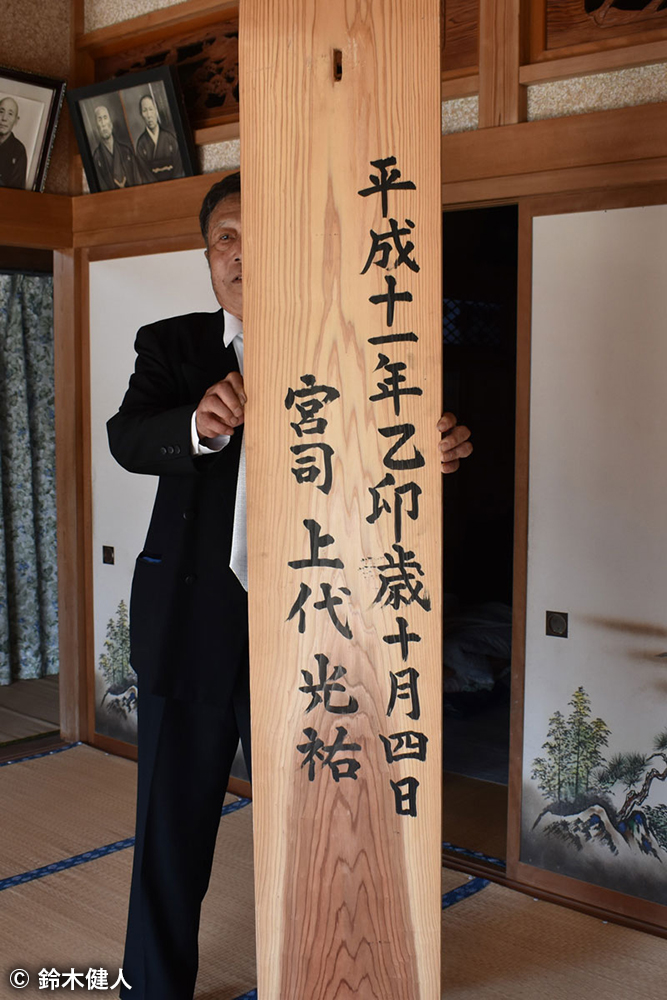 平成十一年乙卯歳十月四日
宮司 上代 光祐
© 鈴木健人